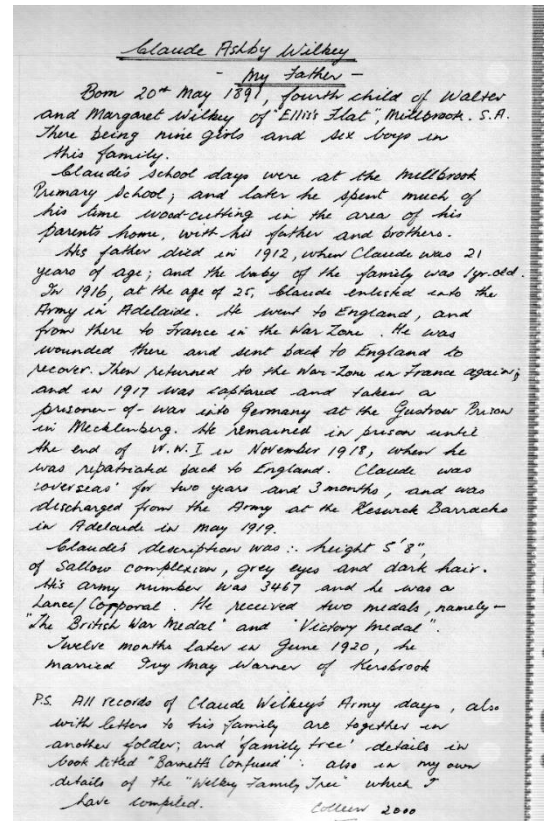 Claude Ashby Wilkey
- My Father -
Born 20th May 1891, fourth child of Walter
and Margaret Wilkey of "Ellis's Flat", Millbrook. S.A.
There being nine girls and six boys in
this family.
Claude's school days were at the Millbrook
Primary School; and later he spent much of
his time wood-cutting in the area of his
parents home, with his father and brothers.
His father died in 1912, when Claude was 21
years of age; and the baby of the family was 1yr. old.
In 1916, at the age of 25, Claude enlisted into the
Army in Adelaide. He went to England, and
from there to France in the War Zone. He was
wounded there and sent back to England to
recover. Then returned to the War-Zone in France again;
and in 1917 was captured and taken a
prisoner-of-war into Germany at the Gustrow Prison
in Mecklenberg. He remained in prison until
the end of W.W.I in November 1918, when he
was repatriated back to England. Claude was
'overseas' for two years and 3 months, and was
discharged from the Army at the Keswick Barracks
in Adelaide in May 1919.
Claude's description was :- height 5'8",
of Sallow complexion, grey eyes and dark hair.
His army number was 3467 and he was a
Lance/Copporal. He received two medals, namely -
"The British War Medal" and "Victory Medal".
Twelve months later in June 1920, he
married Ivy May Warner of Kersbrook
P.S. All records of Claude Wilkey's Army days, also
with letters to his family are together in
another folder; and 'family tree' details in
book titled "Barnetts Confused" : also in my own
details of the "Wilkey Family Tree" which I
have compiled. Colleen 2000